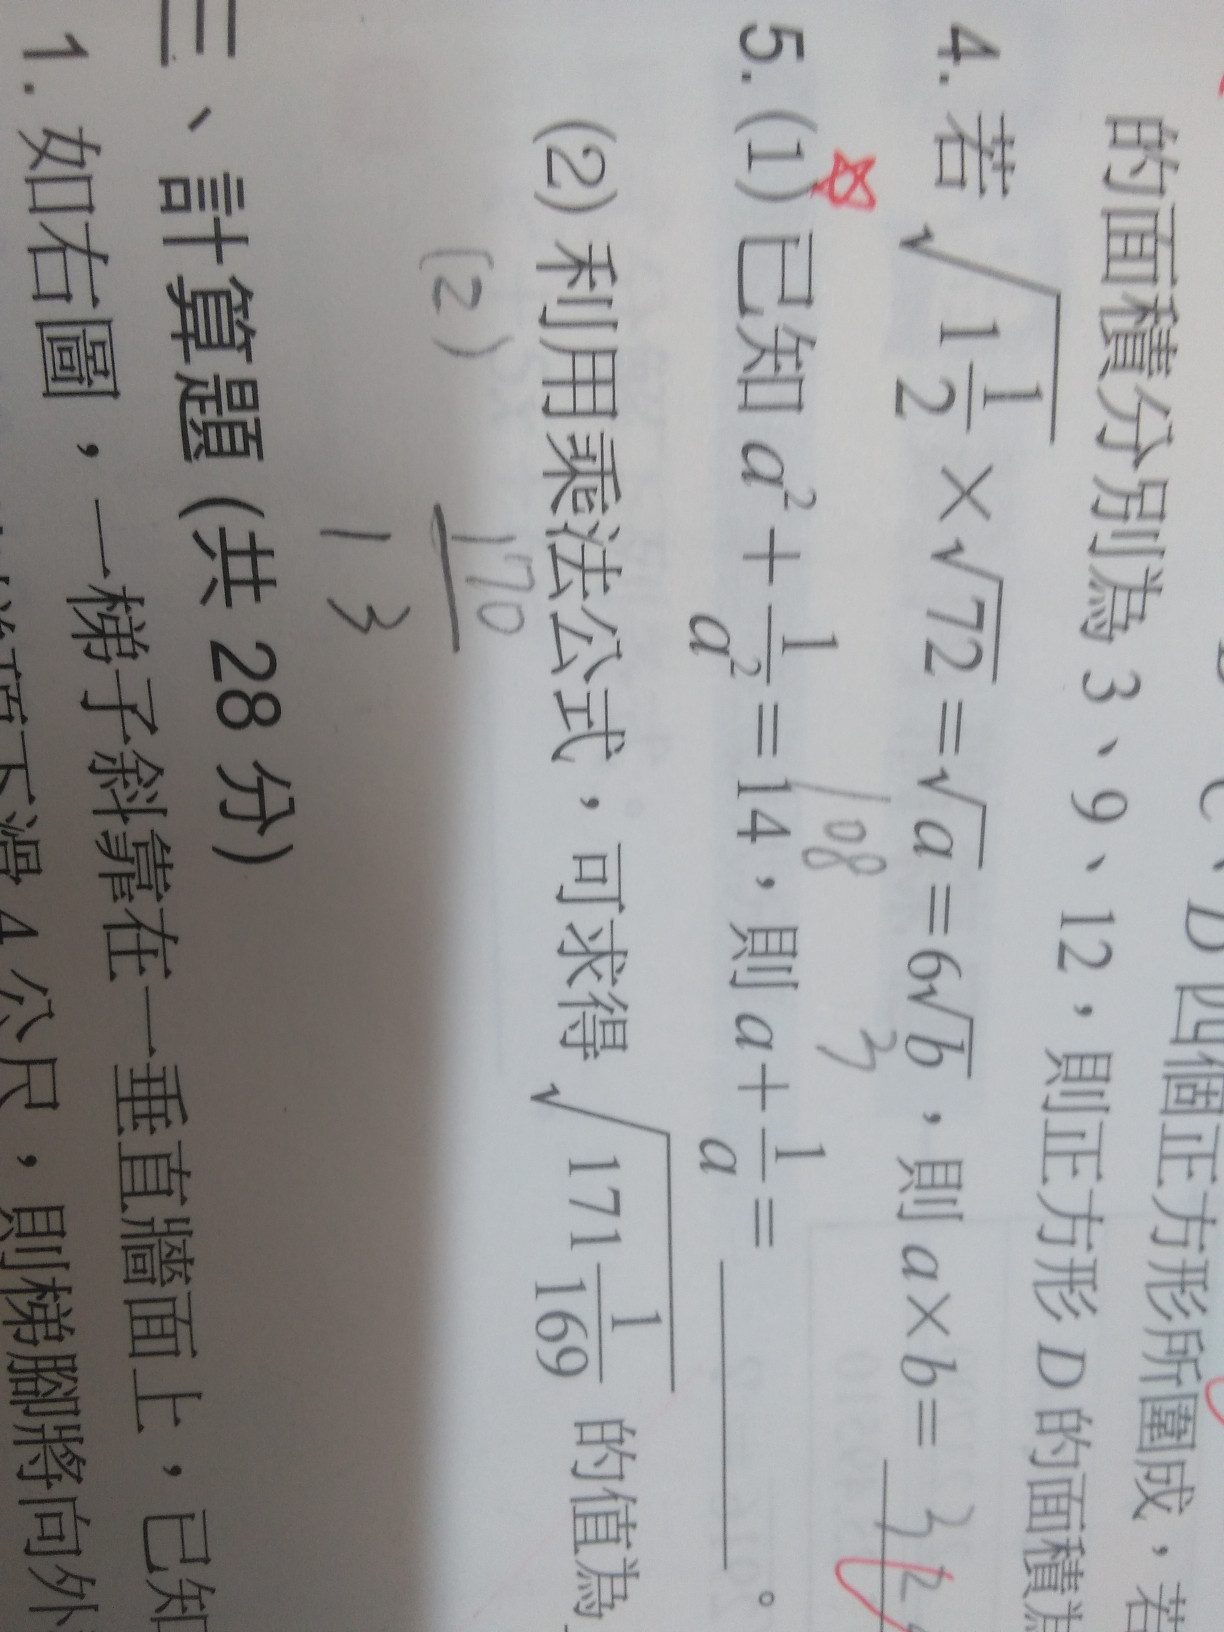 C、D 四個正方形所圍成，若
的面積分別為 3、9、12，則正方形 D 的面積為
4. 若 √(1 1/2) × √72 = √a = 6√b，則 a×b= 324
108 3
5. (1) 已知 a² + 1/a² = 14，則 a + 1/a = ______。
(2) 利用乘法公式，可求得 √(171 1/169) 的值為
(2) 170/13
三、計算題 (共 28 分)
1. 如右圖，一梯子斜靠在一垂直牆面上，已知
下滑 4 公尺，則梯腳將向外